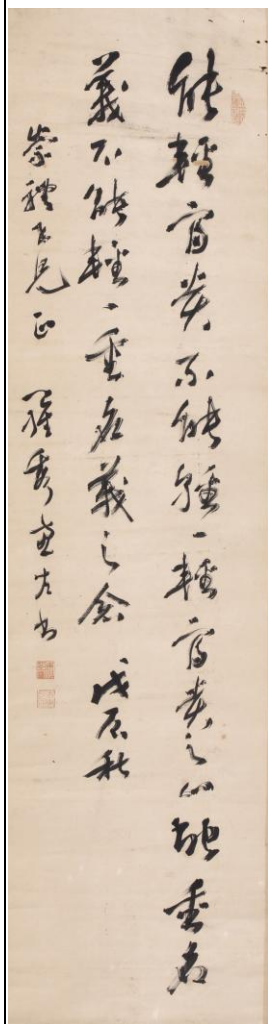 能輕富貴不能輕一輕富貴之心能重名
義不能輕一重名義之念 戊辰秋
崇禮兄正 羅秀惠左書